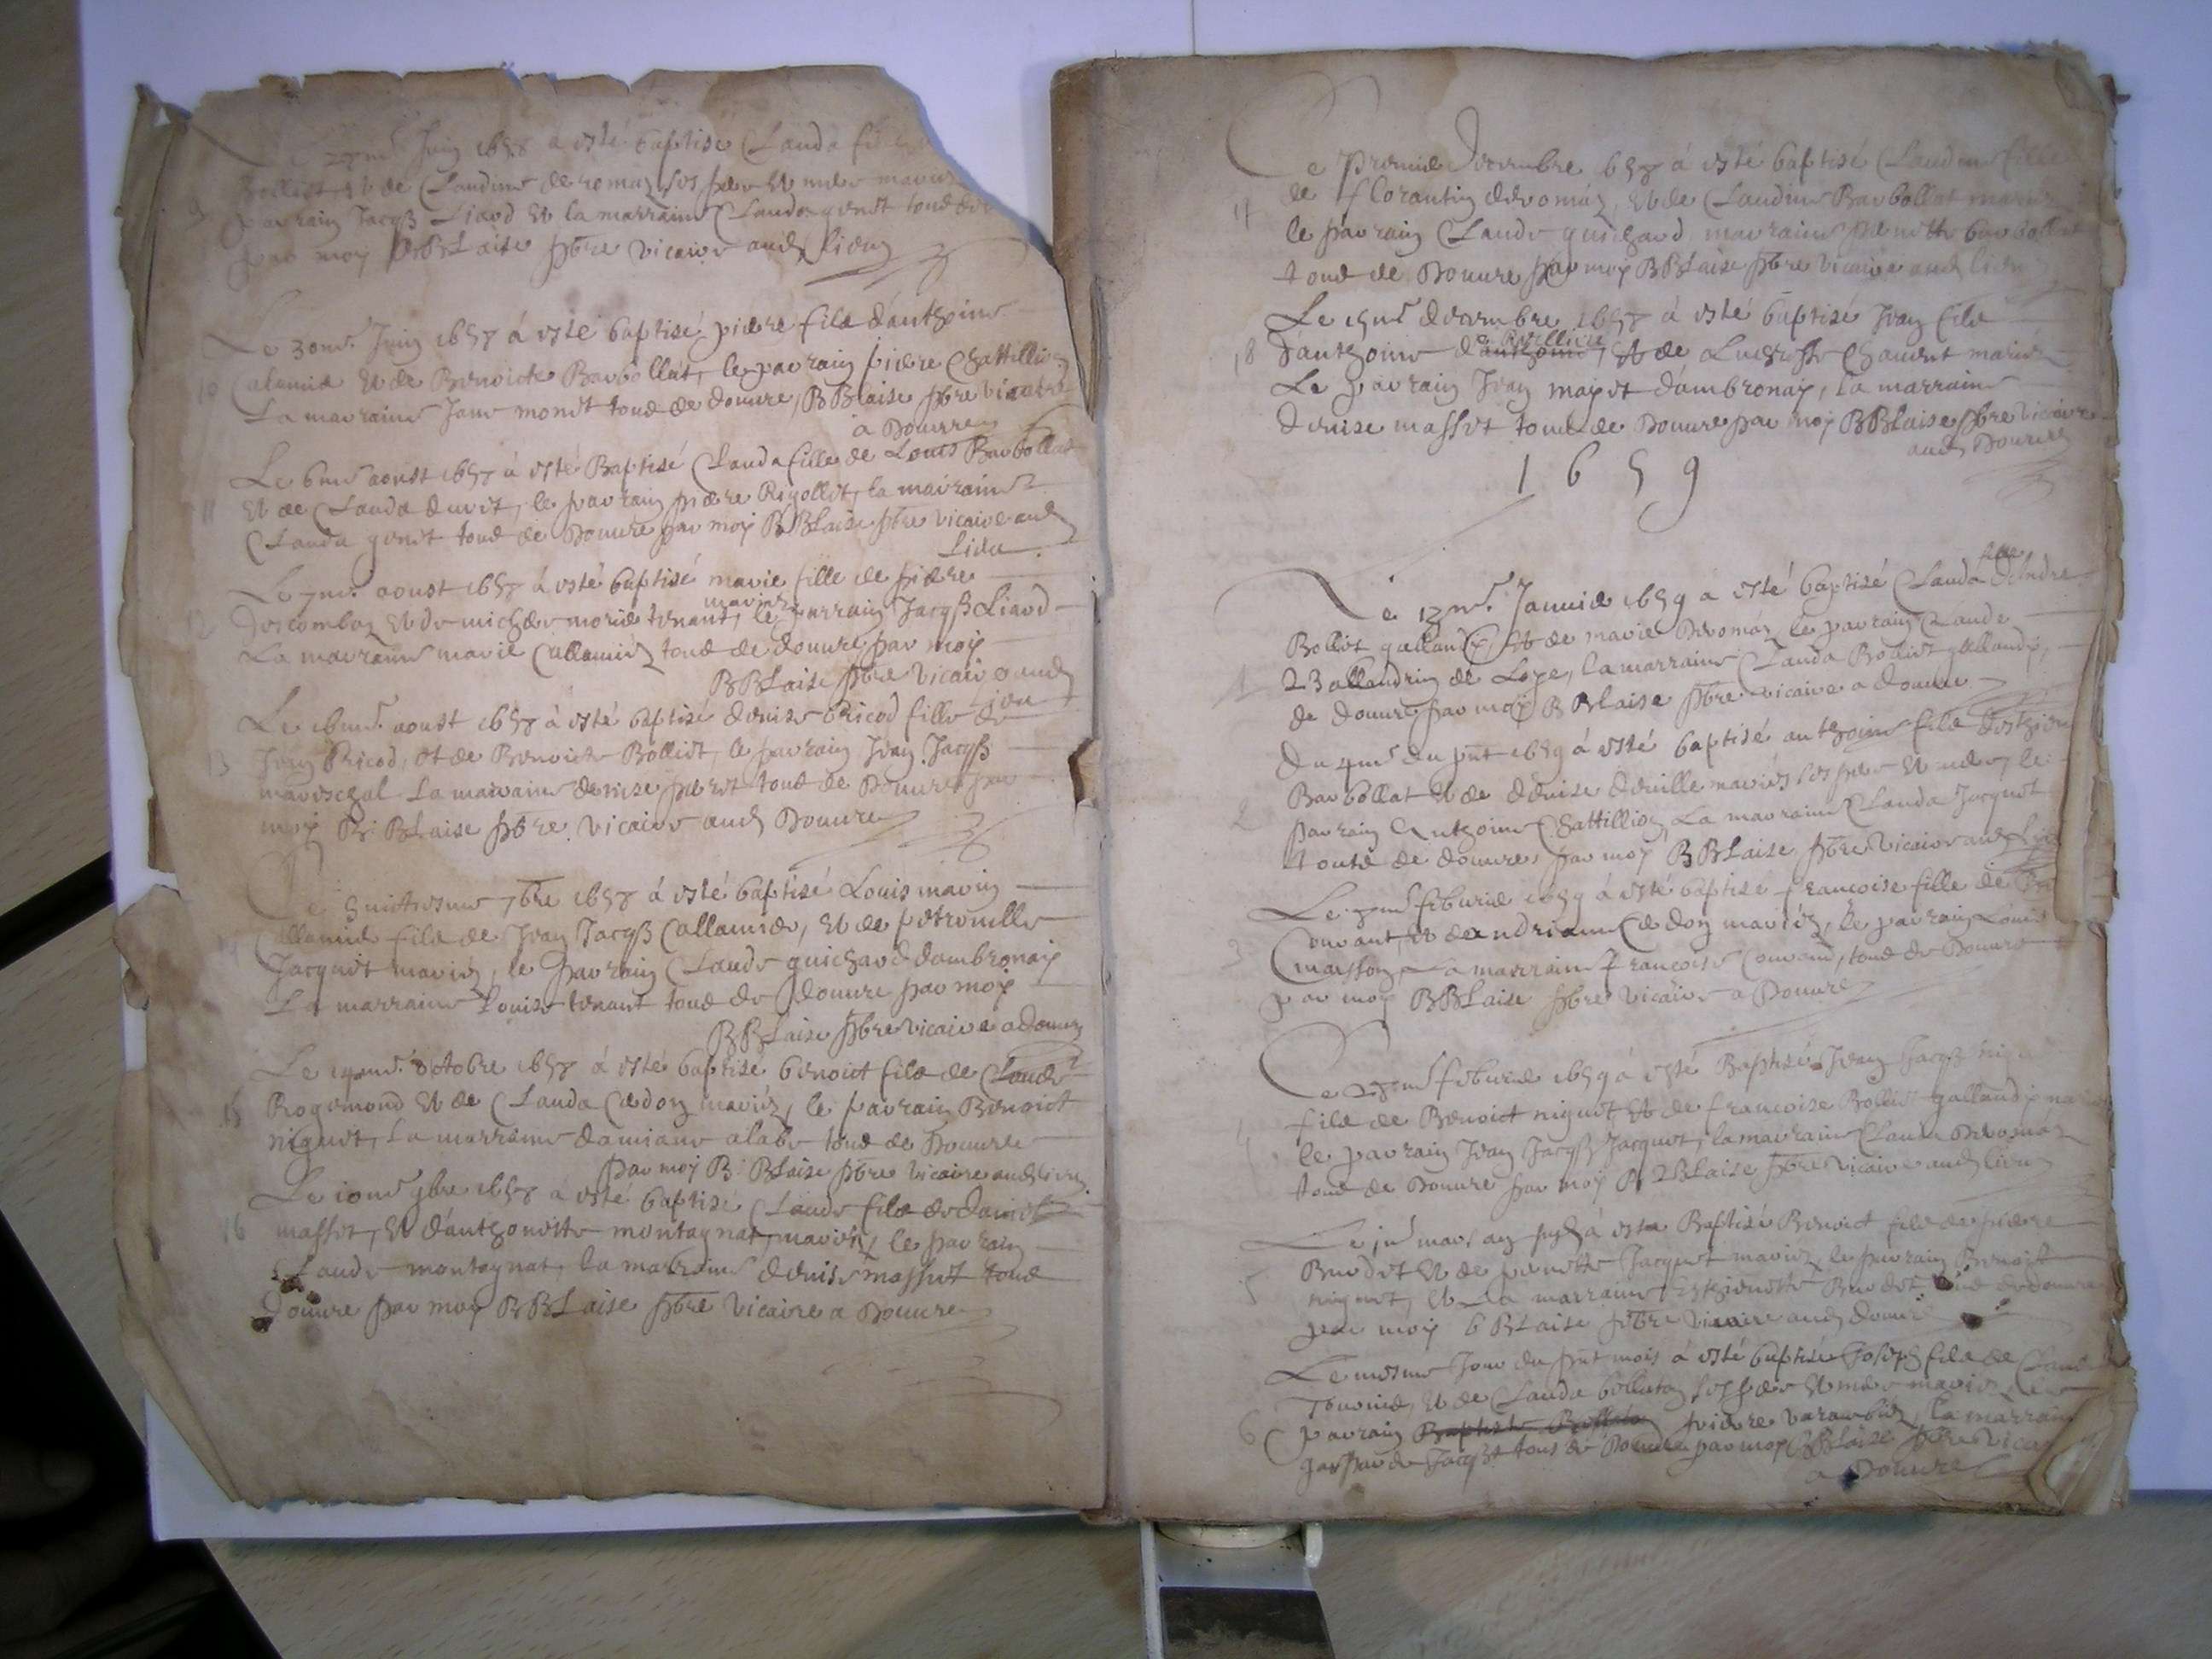 Juin 1658 a esté baptisé Clauda
et de Claudine deromaz ses père et mère mariez
9 parrain Jacqs Liard et la marraine Clauda genet tous de
par moy B Blaise pbre vicaire aud lieu
Le 30me Juin 1658 á esté baptisé, pierre filz d'anthoine
10 Calamié et de Benoiste Barbollat, le parrain pierre Chattillion
La marraine Jane monet tous de douure, B Blaise pbre vicaire
a Douure
Le 6me aoust 1658 á esté Baptisé Clauda fille de Louis Barbollat
11 et de Clauda duvet, le parrain pierre Rigollet, la marraine
Clauda genet tous de Douure par moy B Blaise pbre vicaire aud
Lieu
Le 7me aoust 1658 á esté baptisé marie fille de pierre
12 Descombaz et de michée morié tenant, mariez le parrain Jacqs Liard
La marraine marie Callamié tous de douure par moy
B Blaise pbre vicaire aud
Lieu
Le 16me aoust 1658 á esté baptisé denise Pricod fille de
13 Jean Pricod, et de Benoiste Bolliet, le parrain Jean Jacqs
mareschal La marraine denise peret tous de Douure par
moy B. Blaise pbre vicaire aud Douure
Le huictiesme 7bre 1658 á esté baptisé Louis marin
Callamié filz de Jean Jacqs Callamié, et de petronille
Jacquet mariez, le parrain Claude guichard dambronay
La marraine Louise tenant tous de douure par moy
B Blaise pbre vicaire a douure
Le 14me octobre 1658 á esté baptisé benoict filz de Claude
15 Rogemond et de Clauda Cedoz mariez, le parrain Benoict
niguet, La marraine damiane alabe tous de Douure
par moy B. Blaise pbre vicaire aud lieu
Le 10me 9bre 1658 a esté baptisé Claude filz de daniel
16 masset, et d'anthonette montagnat, mariez, le parrain
Claude montagnat, la marraine denise massuet tous
Douure par moy B Blaise pbre vicaire a Douure
Ce premier decembre 1658 á esté baptisé Claudine fille
17 de florantin deromáz, et de Claudine Barbollat mariez
le parrain Claude guichard marraine pernette barbollat
tous de Douure par moy B Blaise pbre vicaire aud lieu
Le 15me decembre 1658 á esté baptisé Jean filz
18 d'anthoine et de Chauent mariez
Le parrain Jean mayet d'ambronay, la marraine
denise masset tous de Douure par moy B Blaise pbre vicaire
aud Douure
1659
Le 12me Januier 1659 a esté baptisé Clauda fille d'Andre
Bolliet gallandy, et de marie Deromáz le parrain Claude
1 Ballandrin de Loye, la marraine Clauda Bolliet gallandy,
de douure par moy B Blaise pbre vicaire a douure
Du 4me du pñt 1659 á esté baptisé anthoine filz desthienne
2 Barbollat et de denise deuille mariés ses père et mère, le
parrain Anthoine Chattillion, La marraine Clauda Jacquet
toutz de douure par moy B Blaise pbre vicaire aud lieu
Le feburier 1659 á esté baptisé francoise fille de
3 Conuant, et de andrianne Cedoz mariéz, le parrain Louis
masson, La marraine francoise Conuand, tous de Douure
par moy B Blaise pbre vicaire a Douure
Le 27me feburier 1659 á esté Baptisé Jean Jacqs niguet
filz de Benoict niguet et de francoise Bolliet gallandy mariez
4 le parrain Jean Jacqs Jacquet, la marraine Clauda Deromáz
tous de Douure par moy B Blaise pbre vicaire aud lieu
Le mars á esté Baptisé Benoict filz de pierre
5 Brodet et de pernette Jacquet mariez, le parrain Benoist
niguet, et La marraine Esthienette Brodet tous de douure
par moy B Blaise pbre vicaire aud douure
Le mesme Jour du pñt mois á esté baptisé Joseph filz de Claude
Thouié, et de Clauda bollutoz ses père et mère mariez, le
6 parrain pierre varambiez, la marraine
gasparde Jacqs tous de Douure par moy B Blaise pbre vicaire
a Douure